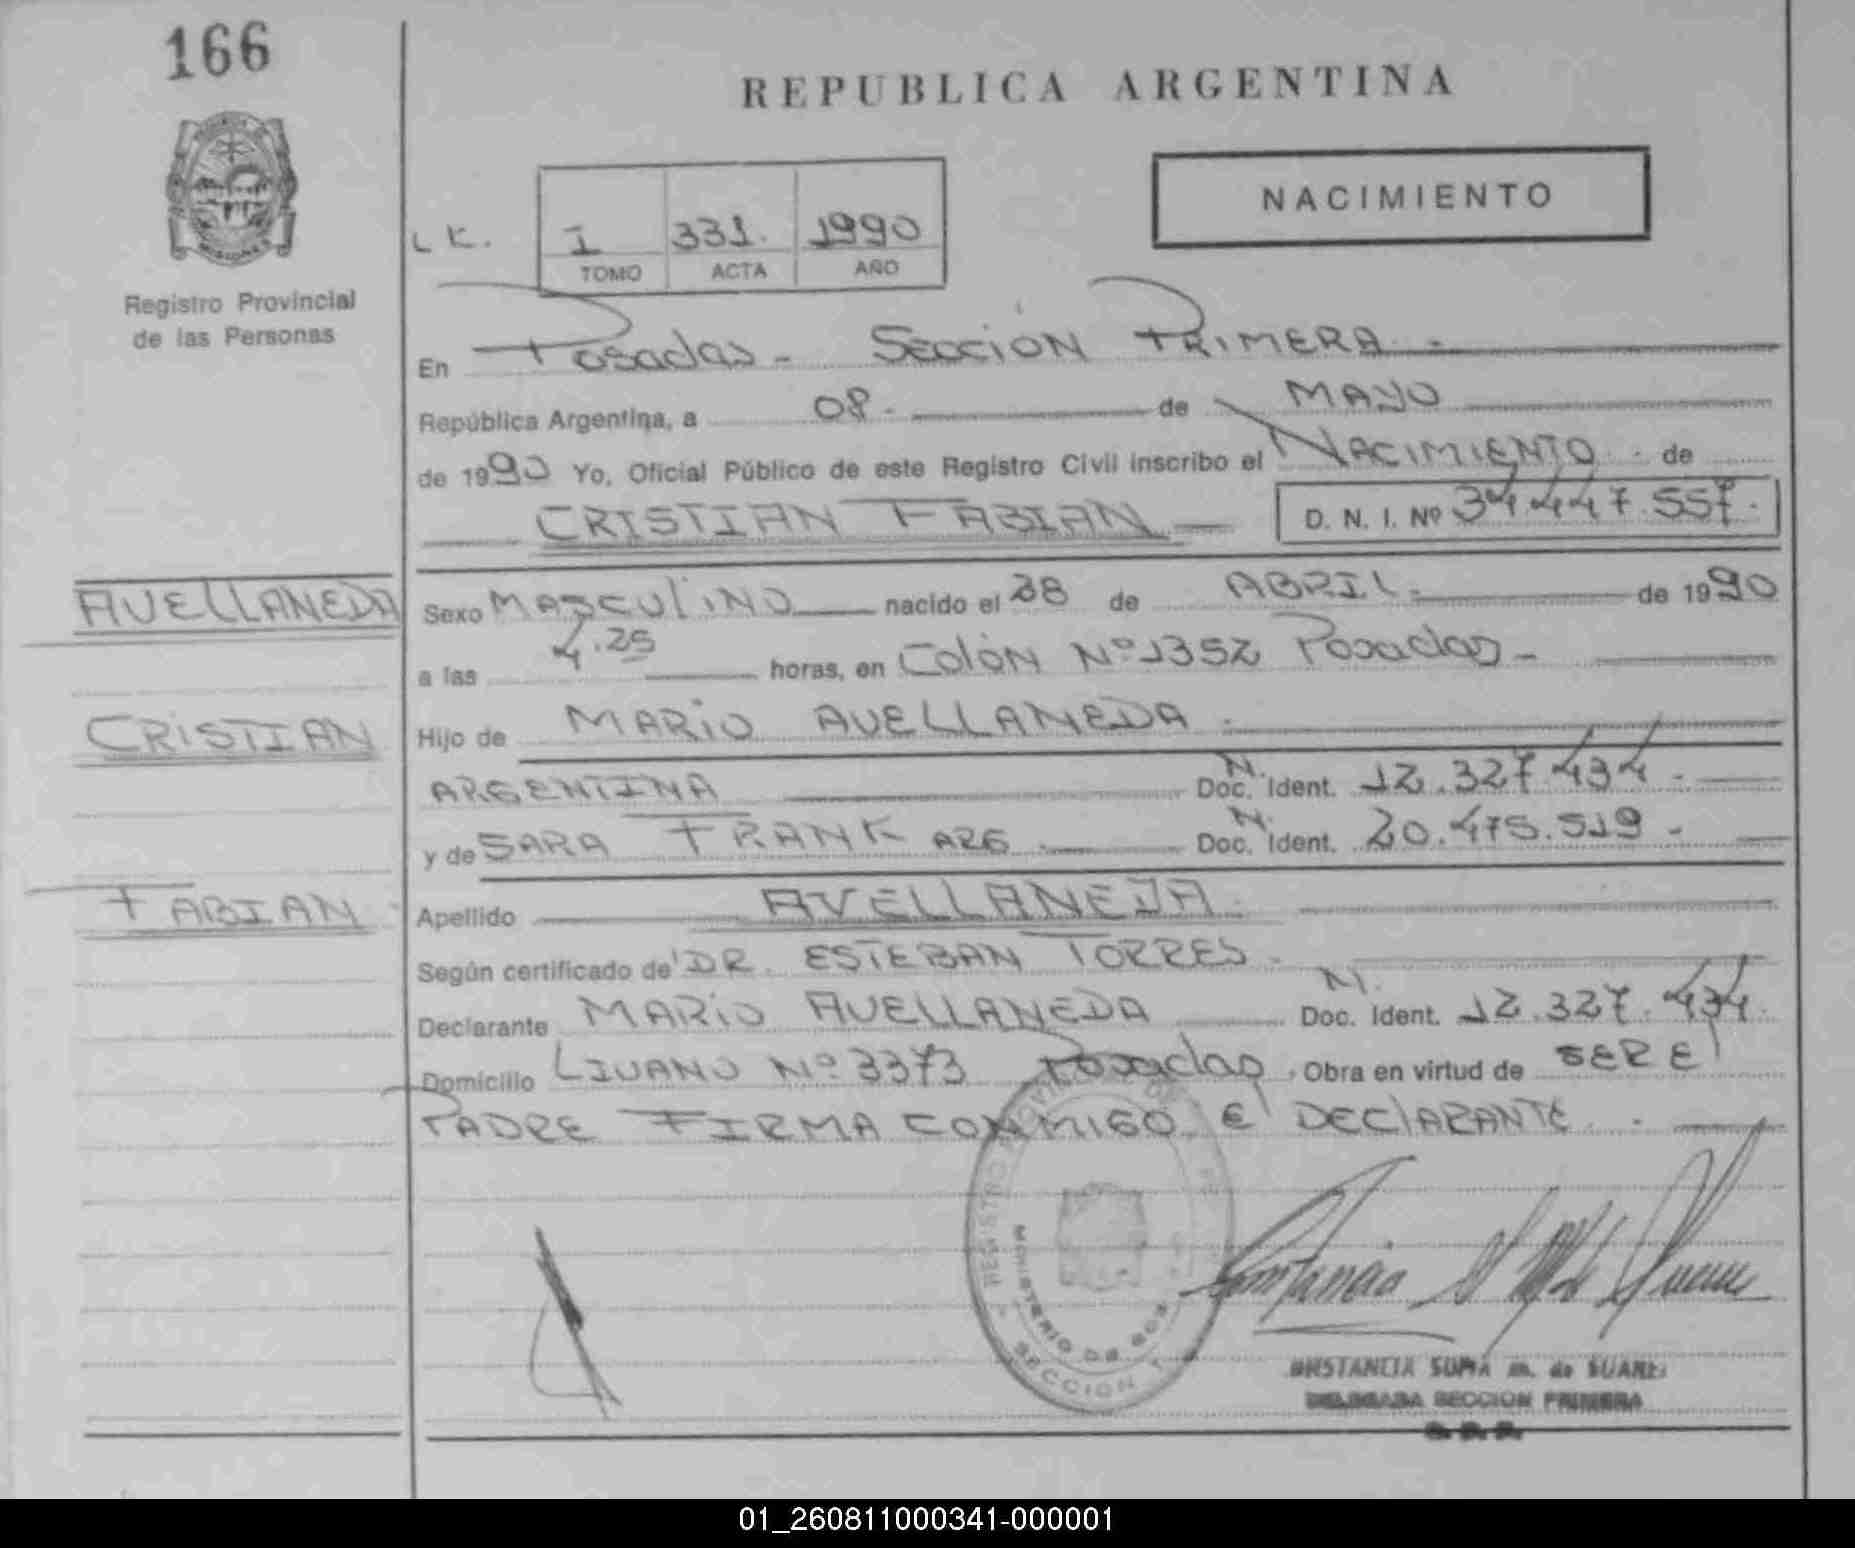 166
REPUBLICA ARGENTINA
NACIMIENTO
Registro Provincial
de las Personas
I 331. 1990
TOMO ACTA AÑO
En Posadas - SECCIÓN PRIMERA -
República Argentina, a 08 - de MAYO
de 1990 Yo, Oficial Público de este Registro Civil inscribo el NACIMIENTO de
CRISTIAN FABIAN D. N. I. Nº 34.447.557.
AVELLANEDA
Sexo MASCULINO nacido el 28 de ABRIL. de 1990
a las 4.25 horas, en COLÓN Nº 1352 Posadas -
CRISTIAN
Hijo de MARIO AVELLANEDA
ARGENTINA Doc. N. Ident. 12.327.434 -
y de SARA FRANK ARG Doc. N. Ident. 20.475.519 -
FABIAN
Apellido AVELLANEDA
Según certificado de DR. ESTEBAN TORRES -
Declarante MARIO AVELLANEDA Doc. N. Ident. 12.327.434.
Domicilio Nº 3373 Posadas, Obra en virtud de SER El
PADRE FIRMA CONMIGO El DEClARANTE -
REGISTRO
MINISTERIO DE GOB
SECCION 1
SOFIA M. de SUAREZ
DELEGADA SECCION PRIMERA
01_260811000341-000001